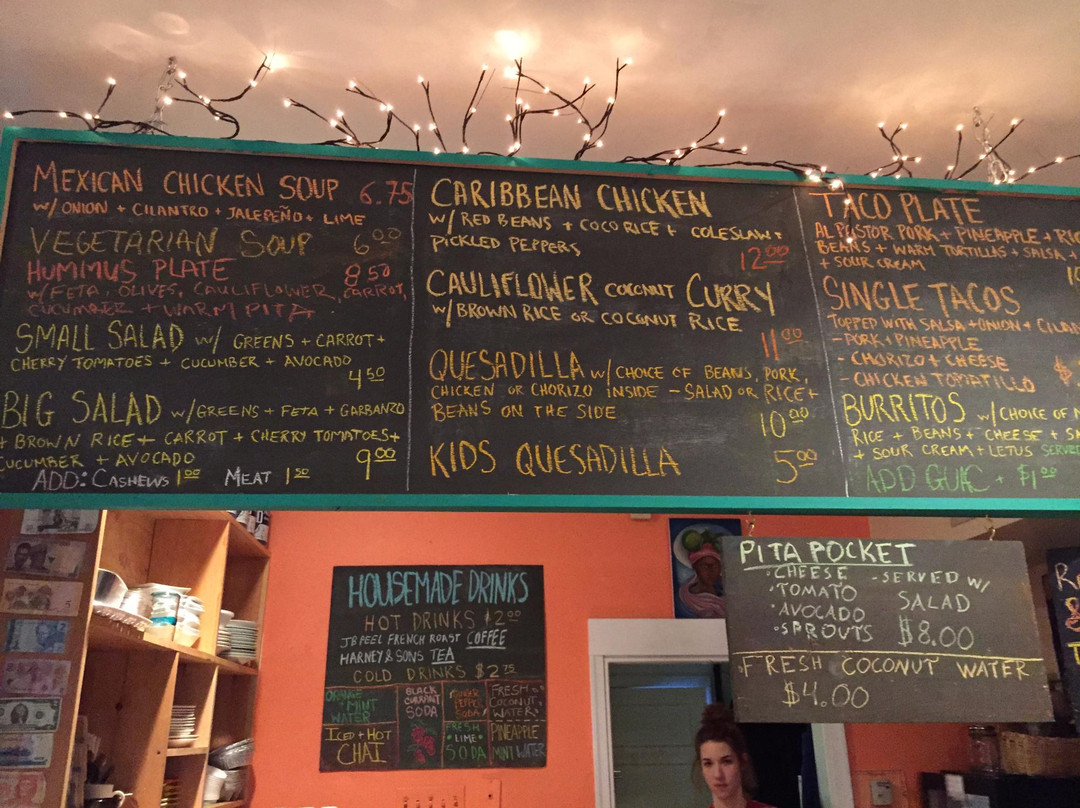 MEXICAN CHICKEN SOUP 6.75
W/ ONION + CILANTRO + JALEPEÑO + LIME
VEGETARIAN SOUP 6.00
HUMMUS PLATE 8.50
W/ FETA, OLIVES, CAULIFLOWER, CARROT,
CUCUMBER + WARM PITA
SMALL SALAD W/ GREENS + CARROT +
CHERRY TOMATOES + CUCUMBER + AVOCADO
4.50
BIG SALAD W/ GREENS + FETA + GARBANZO
+ BROWN RICE + CARROT + CHERRY TOMATOES +
CUCUMBER + AVOCADO 9.00
ADD: CASHEWS 1.00 MEAT 1.50
CARIBBEAN CHICKEN
W/ RED BEANS + COCO RICE + COLESLAW +
PICKLED PEPPERS
12.00
CAULIFLOWER COCONUT CURRY
W/ BROWN RICE OR COCONUT RICE
11.00
QUESADILLA W/ CHOICE OF BEANS, PORK,
CHICKEN OR CHORIZO INSIDE - SALAD OR RICE +
BEANS ON THE SIDE 10.00
KIDS QUESADILLA 5.00
TACO PLATE
AL PASTOR PORK + PINEAPPLE + RIC
BEANS + WARM TORTILLAS + SALSA +
+ SOUR CREAM
SINGLE TACOS
TOPPED WITH SALSA + ONION + CILAN
- PORK + PINEAPPLE
- CHORIZO + CHEESE
- CHICKEN TOMATILLO $
BURRITOS W/ CHOICE OF
RICE + BEANS + CHEESE + SA
+ SOUR CREAM + LETUS SERVE
ADD GUAC + $1.00
HOUSEMADE DRINKS
HOT DRINKS $2.00
JB PEEL FRENCH ROAST COFFEE
HARNEY & SONS TEA
COLD DRINKS $2.75
ORANGE MINT WATER
BLACK CURRANT SODA
GINGER PEPPER SODA
FRESH COCONUT WATER
ICED + HOT CHAI
FRESH LIME SODA
PINEAPPLE MINT WATER
PITA POCKET
• CHEESE - SERVED W/
• TOMATO SALAD
• AVOCADO
• SPROUTS $8.00
• FRESH COCONUT WATER
$4.00